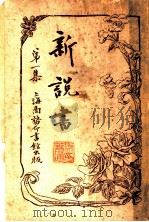 新說書
第一集
上海商務印書館出版